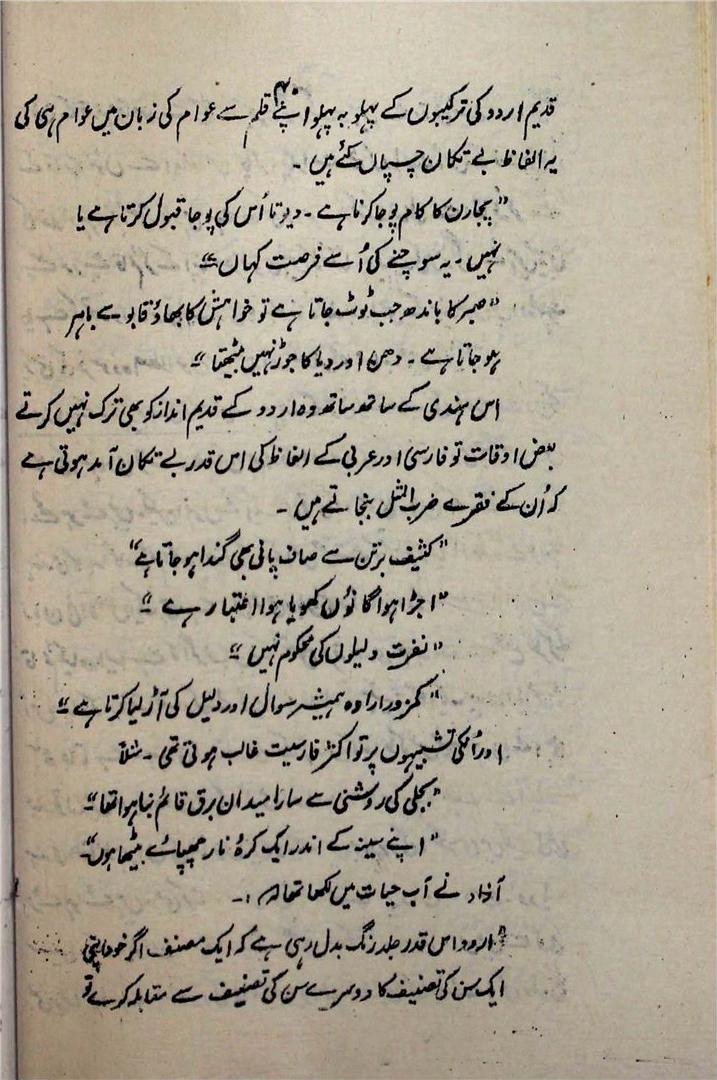 ۴۰
قدیم اردو کی ترکیبوں کے پہلو بہ پہلو اپنے قلم سے عوام کی زبان میں عوام ہی کی
یہ الفاظ بے تکان چسپاں کئے ہیں ۔
"پجارن کا کام پوجا کرنا ہے ۔ دیوتا اُس کی پوجا قبول کرتا ہے یا
نہیں ۔ یہ سوچنے کی اُسے فرصت کہاں"
"صبر کا باندھ جب ٹوٹ جاتا ہے تو خواہش کا بھاؤ قابو سے باہر
ہو جاتا ہے ۔ دھن اور دیا کا جوڑ نہیں بیٹھتا"
اس ہندی کے ساتھ ساتھ وہ اردو کے قدیم انداز کو بھی ترک نہیں کرتے
بعض اوقات تو فارسی اور عربی کے الفاظ کی اس قدر بے تکان آمد ہوتی ہے
کہ اُن کے فقرے ضرب المثل بنجاتے ہیں ۔
"کثیف برتن سے صاف پانی بھی گندا ہو جاتا ہے"
"اجڑا ہوا گاؤں کھویا ہوا اعتبار ہے"
"نفرت دلیلوں کی محکوم نہیں"
"کمزور ارادہ ہمیشہ سوال اور دلیل کی آڑ لیا کرتا ہے"
اور اُنکی تشبیہوں پر تو اکثر فارسیت غالب ہوتی تھی ۔ مثلاً
"بجلی کی روشنی سے سارا میدان برق قائم بنا ہوا تھا"
"اپنے سینہ کے اندر ایک کرۂ نار چھپائے بیٹھا ہوں"
آزاد نے آب حیات میں لکھا تھا کہ :۔
"اردو اس قدر جلد رنگ بدل رہی ہے کہ ایک مصنف اگر خود اپنی
ایک سن کی تصنیف کا دوسرے سن کی تصنیف سے مقابلہ کرے تو